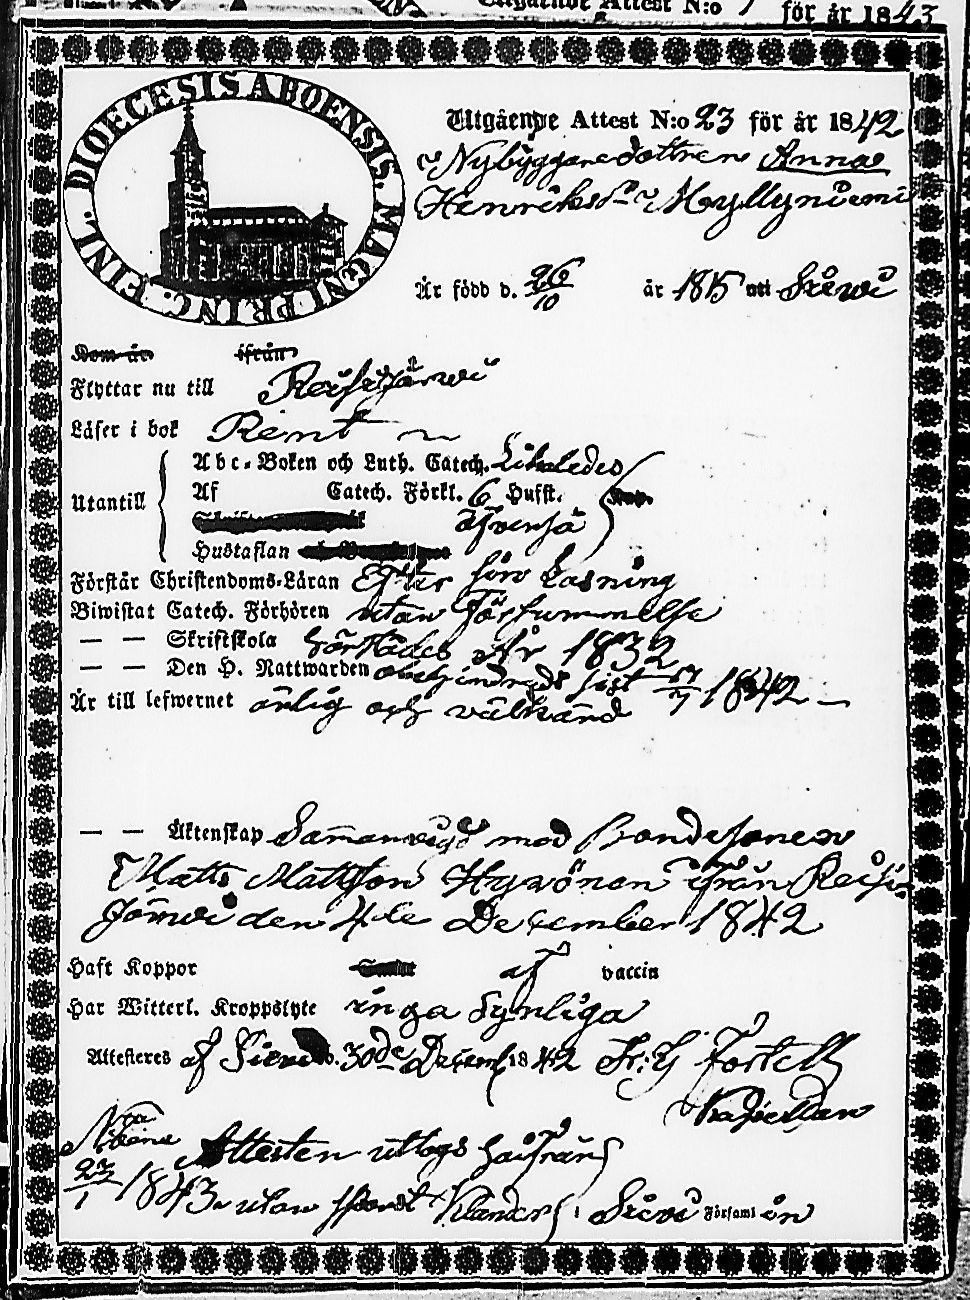 Utgående Attest N:o
för år 1843
FINL. DIOECESIS ABOENSIS. MAGNI PRINC.
Utgående Attest N:o 23 för år 1842
Nybyggaredottren Anna
Henriksdr Myllyniemi
Är född d. 26/10 år 1815 uti Siewi
Kom år ifrån
Flyttar nu till Reisijärwi
Läser i bok Rent
Utantill
Abc-Boken och Luth. Catech. Likaledes
Af Catech. Förkl. 6 Hufst.
äfvenså
Hustaflan
Förstår Christendoms-Läran Efter sin Läsning
Biwistat Catech. Förhören utan Försummelse
— — Skriftskola År 1832
— — Den H. Nattwarden obehindrad sist 17/7 1842
Är till lefwernet ärlig och välkänd
— — Äktenskap Samanvigd med Bondesonen
Matts Mattsson Hyvönen ifrån Reisi-
järwi den 4de December 1842
Haft Koppor af vaccin
Har Witterl. Kroppslyte inga Synliga
Attesteres af Siewi d. 30de Decemb 1842 Fortell
Kapellan
Attesten uttogs härifrån
23/1 1843 utan Klander i Siewi Församl en